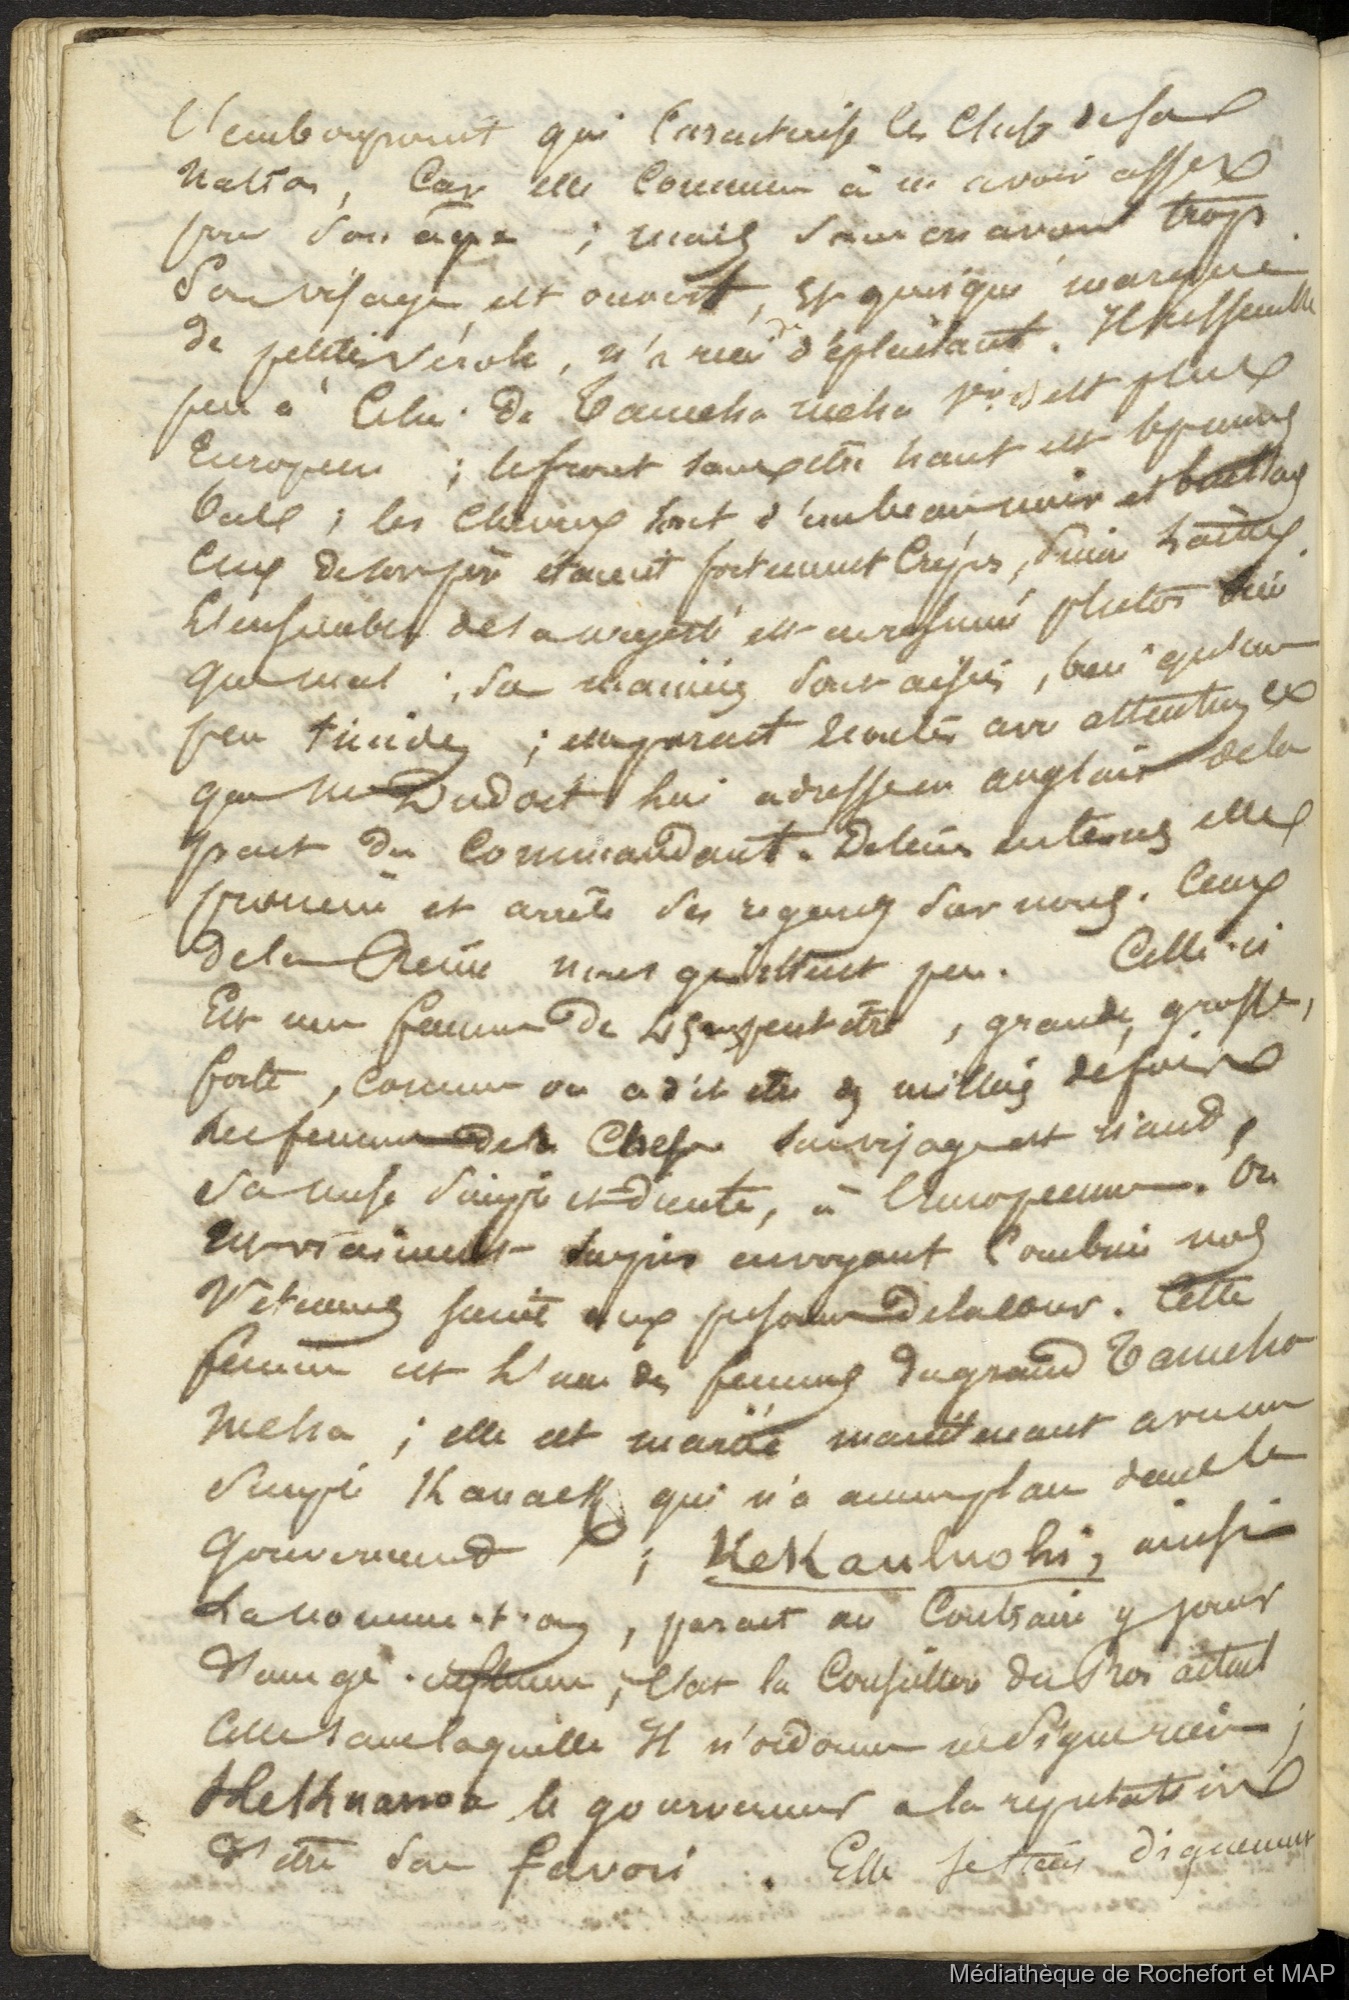 L'embonpoint qui Caracterise les Chefs de sa
Nation, Car elle Commence à en avoir assez
pour son âge ; mais sans en avoir trop.
Son visage est ouvert, et quoique marqué
de petite vérole, n'a rien de déplaisant. Il ressemble
peu à Celui de Tameha meha 1er et est plus
Européen ; le front sans être haut est
; les Cheveux sont d'un beau noir et
Ceux de son père étaient fortement Crépus,
L'ensemble de sa majesté est en résumé plutôt bien
que mal ; ses manières sont aisées, bien qu'un
peu timides ; elle parait écouter avec attention ce
que Mr Dudoit lui adresse en anglais de la
part du Commandant. De tems en tems elle
promène et arrête ses regards sur nous. Ceux
de la Reine nous quittent peu. Celle-ci
Est une femme de 45 ans peut être, grande, grosse,
forte, comme on a dit être des milliers de fois
les femmes des Chefs son visage est riant,
sa mise simple et décente, à l'Européenne. On
est vraiment surpris en voyant Combien nos
Vêtemens sont aux personnes de la Cour. Cette
femme est L'une des femmes du grand Tameha
meha ; elle est mariée maintenant avec un
simple Kanack qui n'a aucun plan dans le
Gouvernement ; KeKauluohi, ainsi
La nomme-t-on, parait au Contraire y jouir
d'une gde influence ; C'est la Conseillère du Roi actuel
Celle sans laquelle Il n'ordonne ne signe rien ;
KeKuanoa le gouverneur a la reputation
d'être son favori. Elle se tien dignement
Médiathèque de Rochefort et MAP